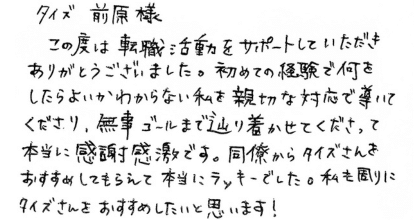 タイズ 前原様
この度は転職活動をサポートしていただき
ありがとうございました。初めての経験で何を
したらよいかわからない私を親切な対応で導いて
くださり、無事ゴールまで辿り着かせてくださって
本当に感謝感激です。同僚からタイズさんを
おすすめしてもらえて本当にラッキーでした。私も周りに
タイズさんをおすすめしたいと思います!